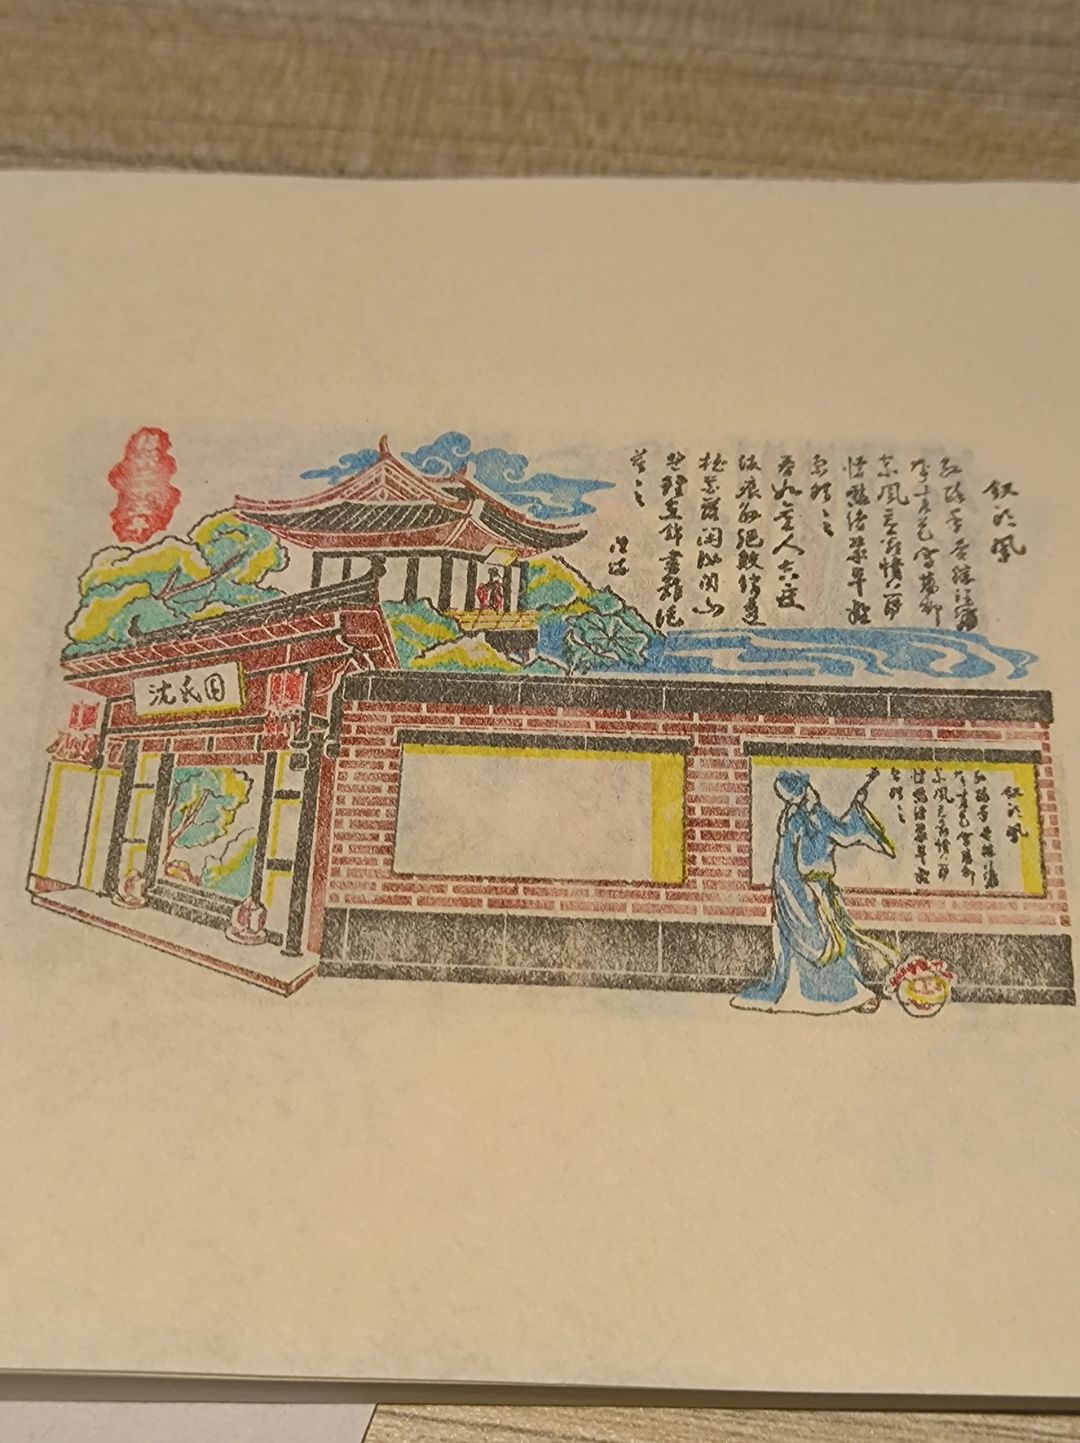 沈氏园
钗头凤
红酥手黄縢酒满
城春色宫墙柳
东风恶欢情薄一
怀愁绪几年離
索错々々
春如旧人空瘦
泪痕红浥鲛绡透
桃花落闲池阁山
盟雖在錦書難托
莫々々
陆游
钗头凤
红酥手黄縢酒满
城春色宫墙柳
东风恶欢情薄一
怀愁绪几年離
索错々々